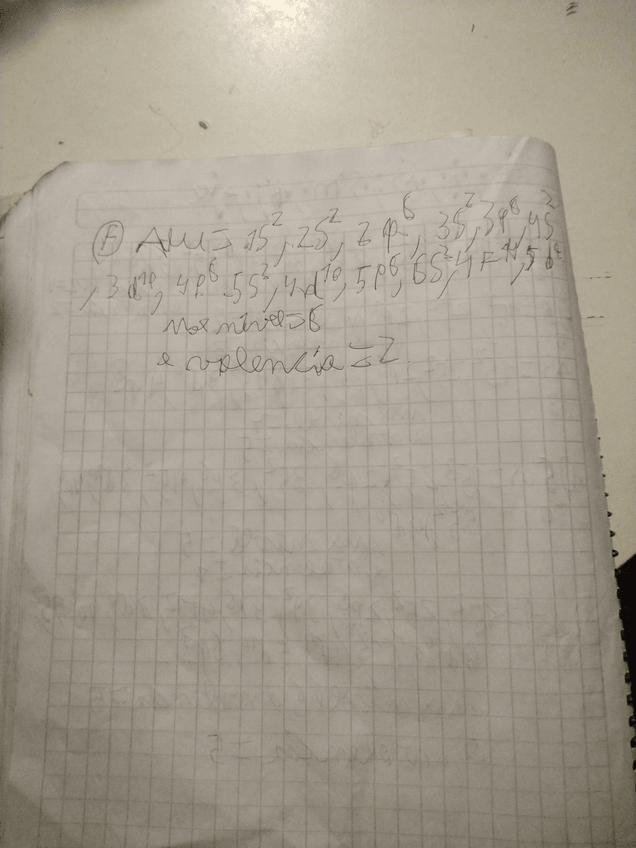 (F) Au = 1S², 2S², 2p⁶, 3S², 3p⁶, 4S²
, 3d¹⁰, 4p⁶ 5S², 4d¹⁰, 5p⁶, 6S², 4F¹⁴, 5d⁹
Max nivel = 6
e valencia = 2